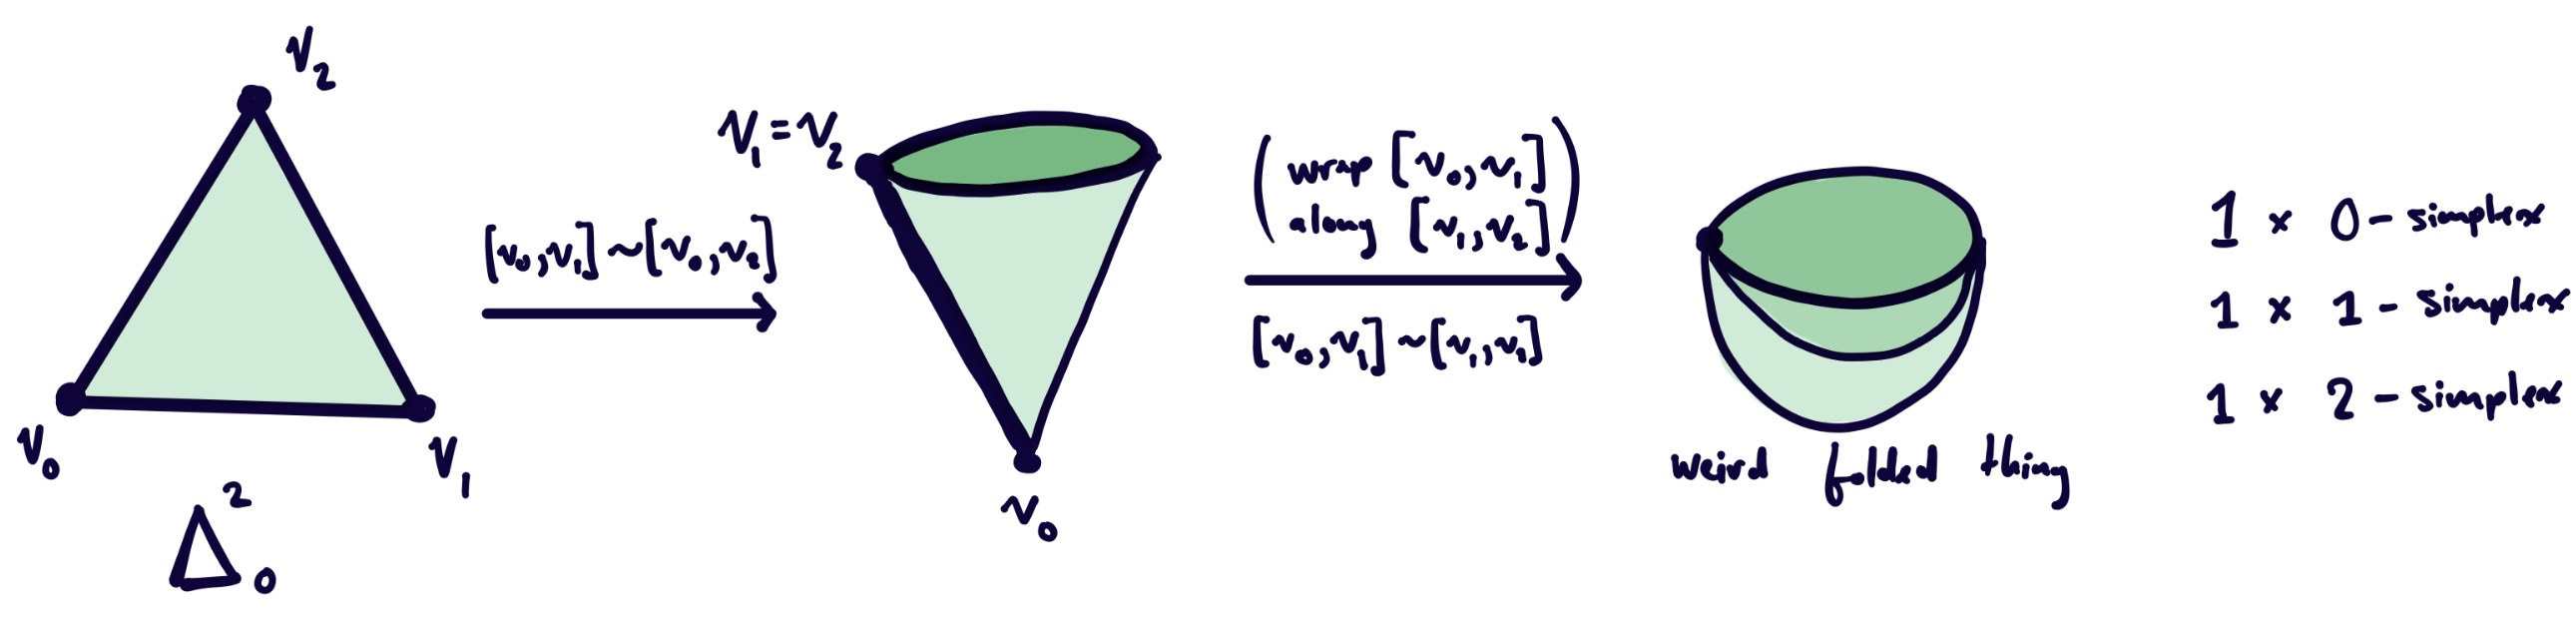 v₂
v₀
v₁
Δ²₀
[v₀,v₁]~[v₀,v₂]
v₁=v₂
v₀
(wrap [v₀,v₁]
along [v₁,v₂])
[v₀,v₁]~[v₁,v₂]
weird folded thing
1 x 0-simplex
1 x 1-simplex
1 x 2-simplex